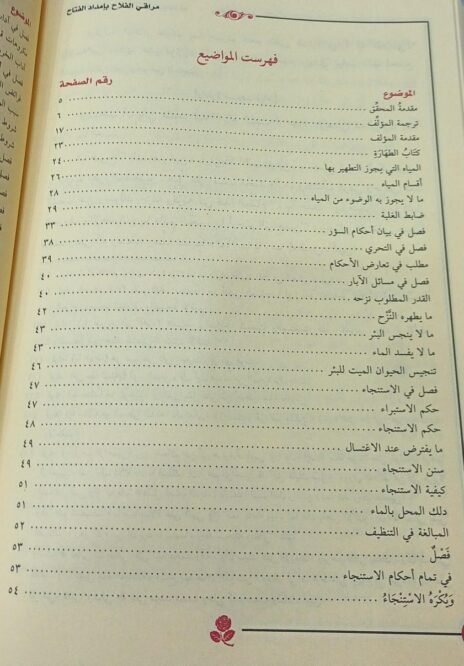 مراقي الفلاح بإمداد الفتاح
فهرست المواضيع
الموضوع رقم الصفحة
مقدمةُ المحقّق ٥
ترجمة المؤلّف ٦
مقدمة المؤلف ١٧
كتَابُ الطهَارَةِ ٢٣
المياه التي يجوز التطهير بها ٢٤
أقسام المياه ٢٦
ما لا يجوز به الوضوء من المياه ٢٨
ضابط الغلبة ٢٩
فصل في بيان أحكام السؤر ٣٣
فصل في التحري ٣٨
مطلب في تعارض الأحكام ٣٩
فصل في مسائل الآبار ٤٠
القدر المطلوب نزحه ٤٠
ما يطهره النَّزْح ٤٢
ما لا ينجس البئر ٤٣
ما لا يفسد الماء ٤٣
تنجيس الحيوان الميت للبئر ٤٦
فصل في الاستنجاء ٤٧
حكم الاستبراء ٤٧
حكم الاستنجاء ٤٨
ما يفترض عند الاغتسال ٤٩
سنن الاستنجاء ٤٩
كيفية الاستنجاء ٥١
دلك المحل بالماء ٥١
المبالغة في التنظيف ٥٢
فَصْلٌ ٥٣
في تمام أحكام الاستنجاء ٥٣
وَيُكْرَهُ الاسْتِنْجَاءُ ٥٤